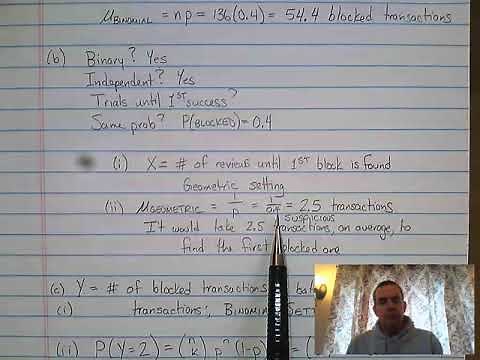 μBINOMIAL = np = 136(0.4) = 54.4 blocked transactions
(b) Binary? Yes
Independent? Yes
Trials until 1ST success?
Same prob? P(BLOCKED) = 0.4
(i) X = # of reviews until 1ST block is found
Geometric setting
(ii) μGEOMETRIC = 1/p = 1/0.4 = 2.5 transactions
suspicious
It would take 2.5 transactions, on average, to
find the first blocked one
(c) Y = # of blocked transactions
(i) transactions; BINOMIAL
(ii) P(Y=2) = (n k) p^n (1-p)